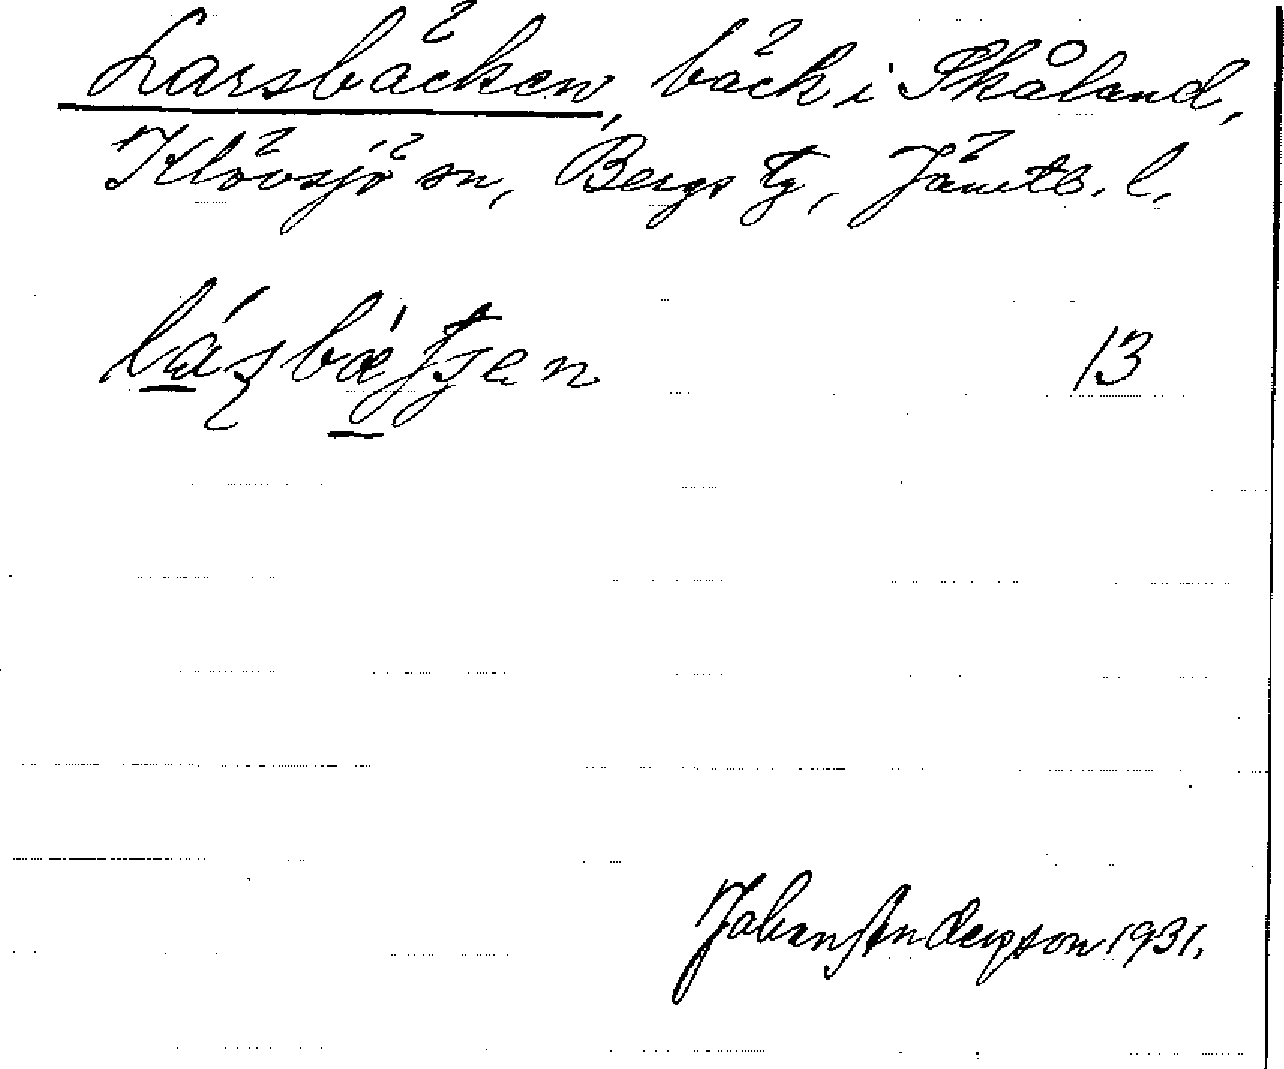 Larsbäcken, bäck i Skåland,
Klövsjö sn, Bergs tg, Jämtl. l.
13
Johan Anderson 1931.